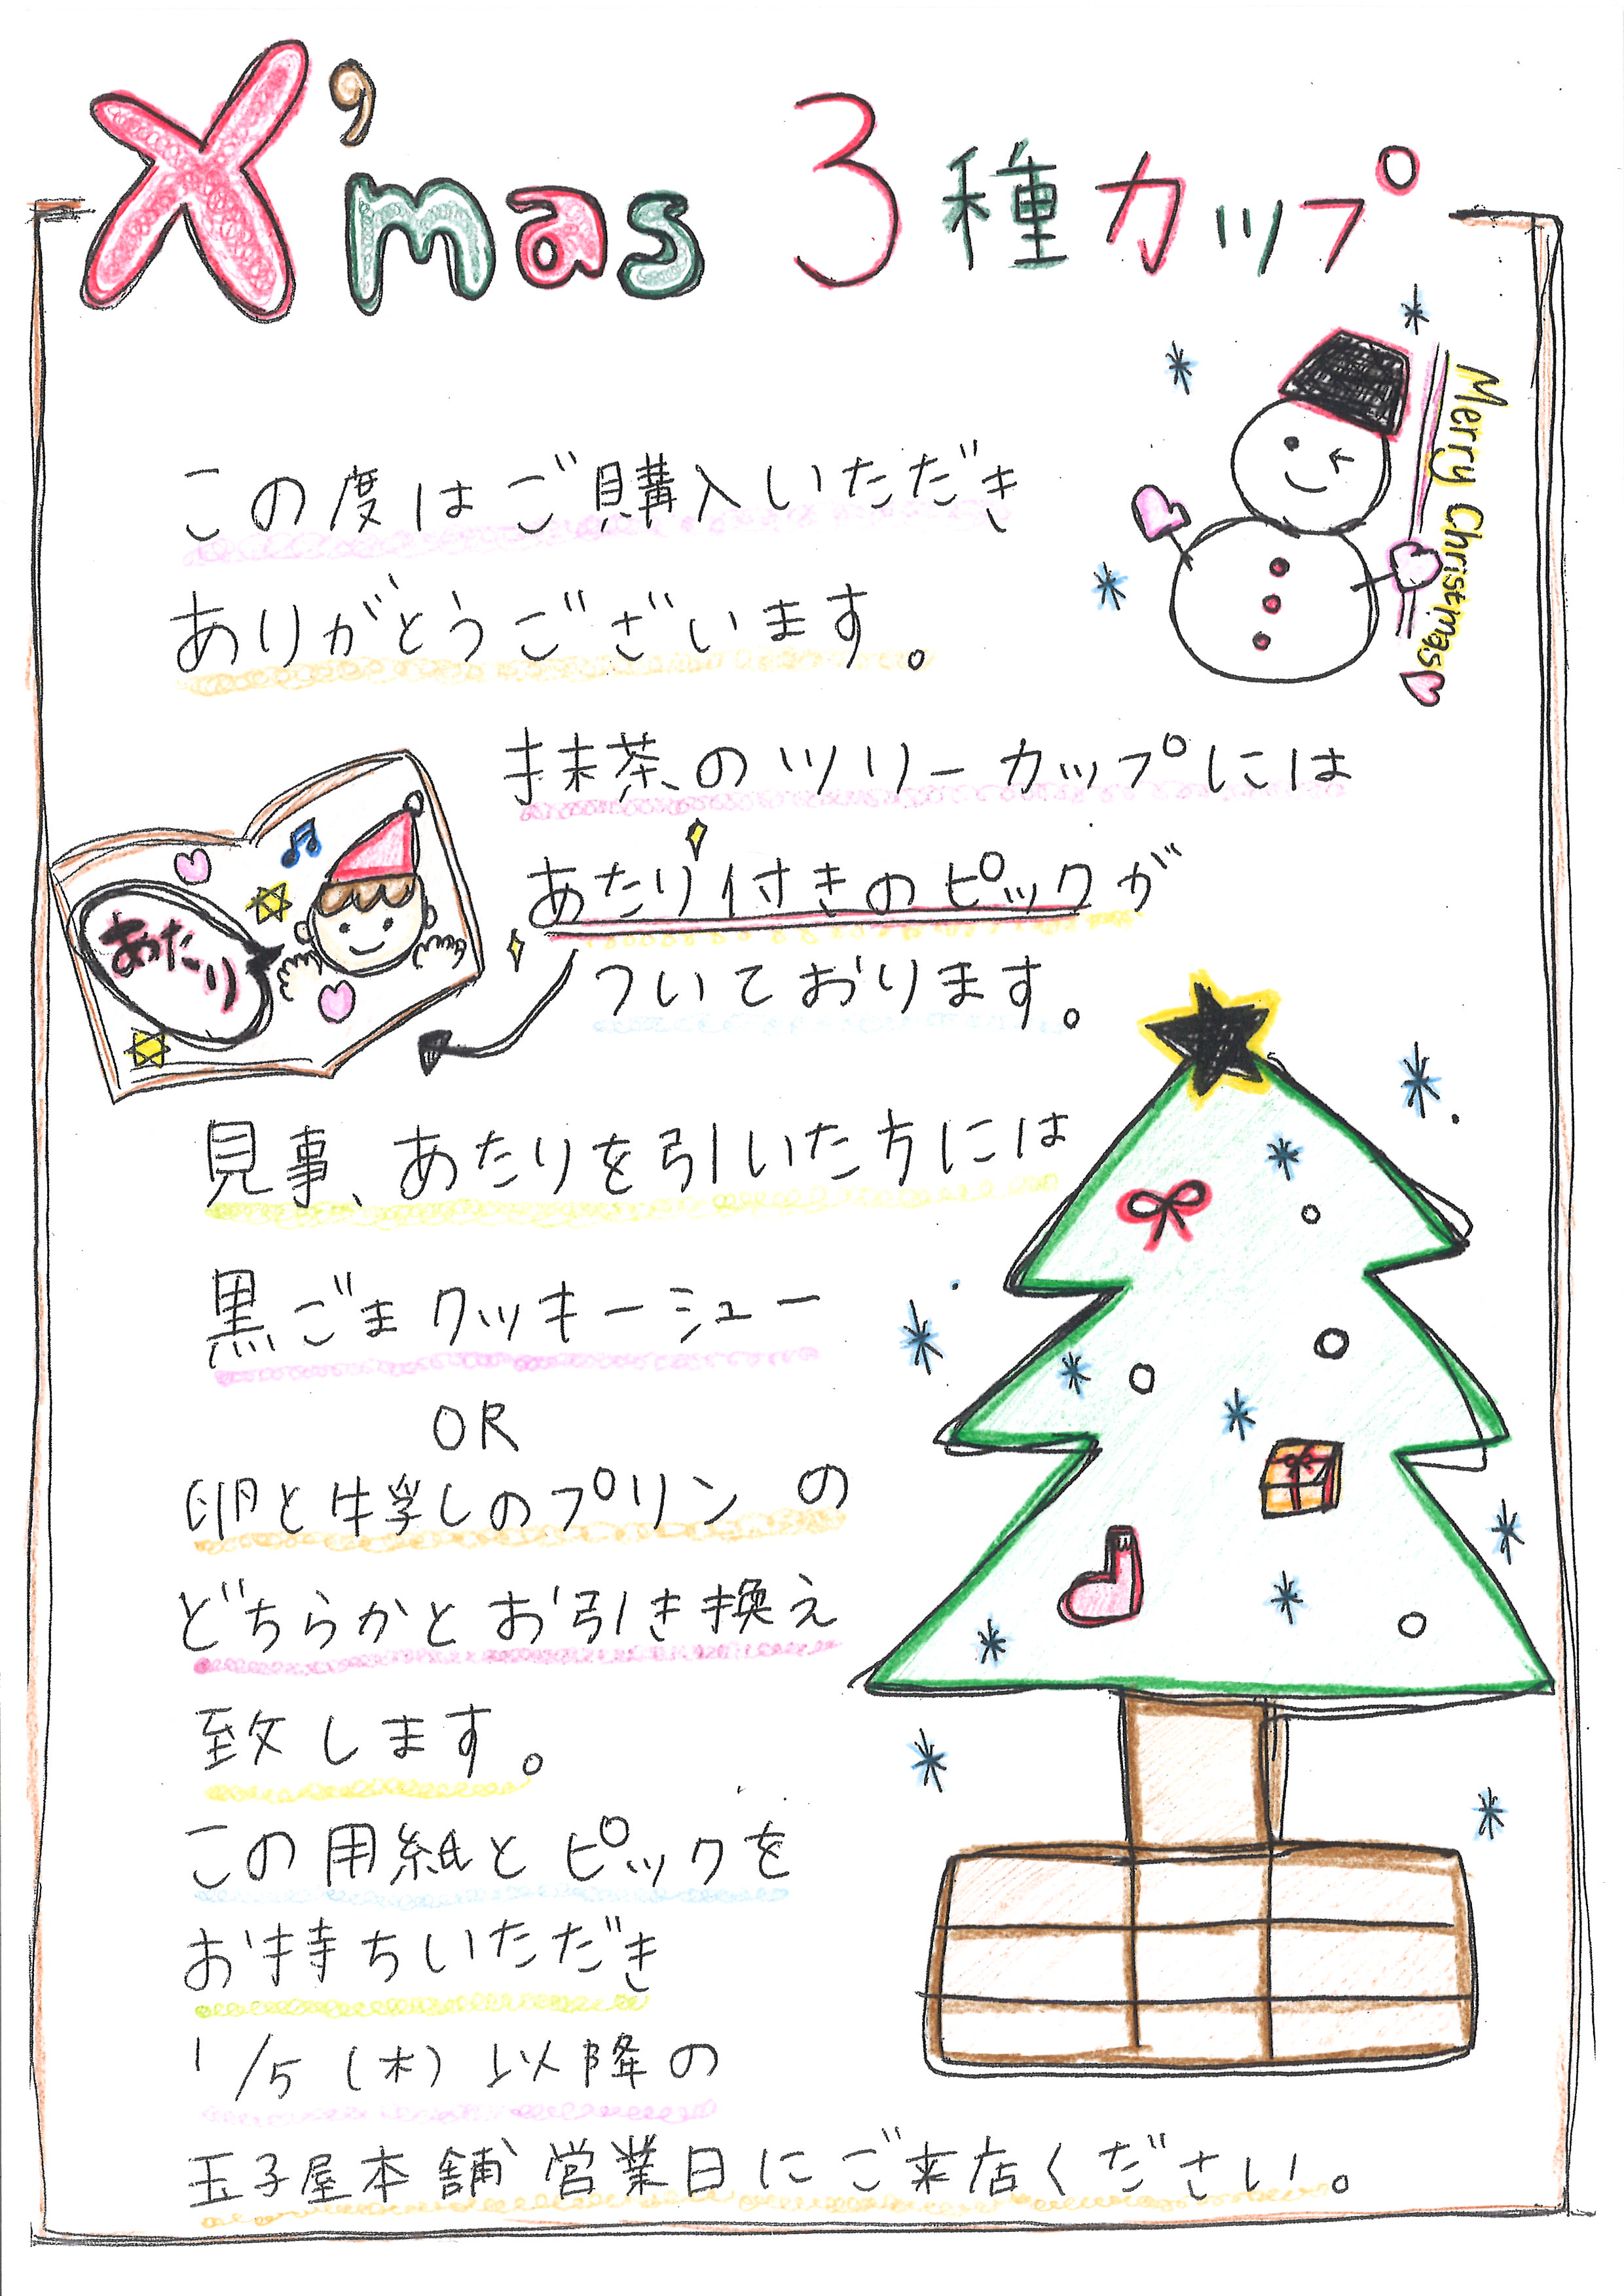 X'mas 3種カップ
Merry Christmas
この度はご購入いただき
ありがとうございます。
抹茶のツリーカップには
あたり付きのピックが
ついております。
あたり
見事、あたりを引いた方には
黒ごまクッキーシュー
OR
卵と牛乳しのプリン の
どちらかとお引き換え
致します。
この用紙とピックを
お持ちいただき
1/5 (木) 以降の
玉子屋本舗営業日にご来店ください。